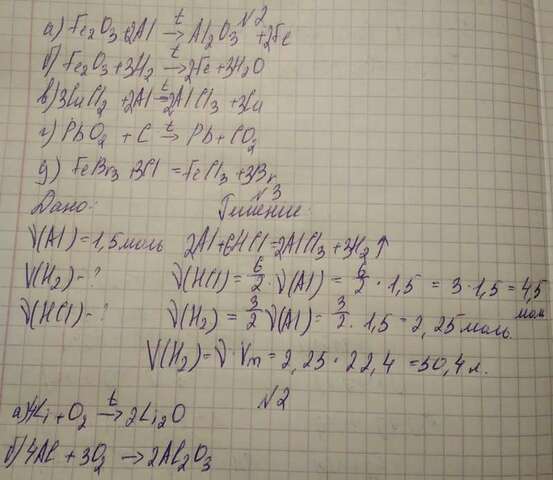 №2
а) Fe₂O₃+2Al →ᵗ Al₂O₃ +2Fe
б) Fe₂O₃+3H₂ →ᵗ 2Fe+3H₂O
в) 3CuCl₂ +2Al =ᵗ 2AlCl₃ +3Cu
г) PbO₂ + C →ᵗ Pb+CO₂
д) FeBr₃ +3Cl = FeCl₃ +3Br
№3
Дано: Решение:
ν(Al)=1,5моль 2Al+6HCl=2AlCl₃+3H₂↑
V(H₂)-? ν(HCl)=6/2·ν(Al)=6/2·1,5=3·1,5=4,5 моль
ν(HCl)-? ν(H₂)=3/2ν(Al)=3/2·1,5=2,25моль.
V(H₂)=ν·Vm=2,25·22,4=50,4л.
№2
а) 4Li+O₂ →ᵗ 2Li₂O
б) 4Al+3O₂ → 2Al₂O₃